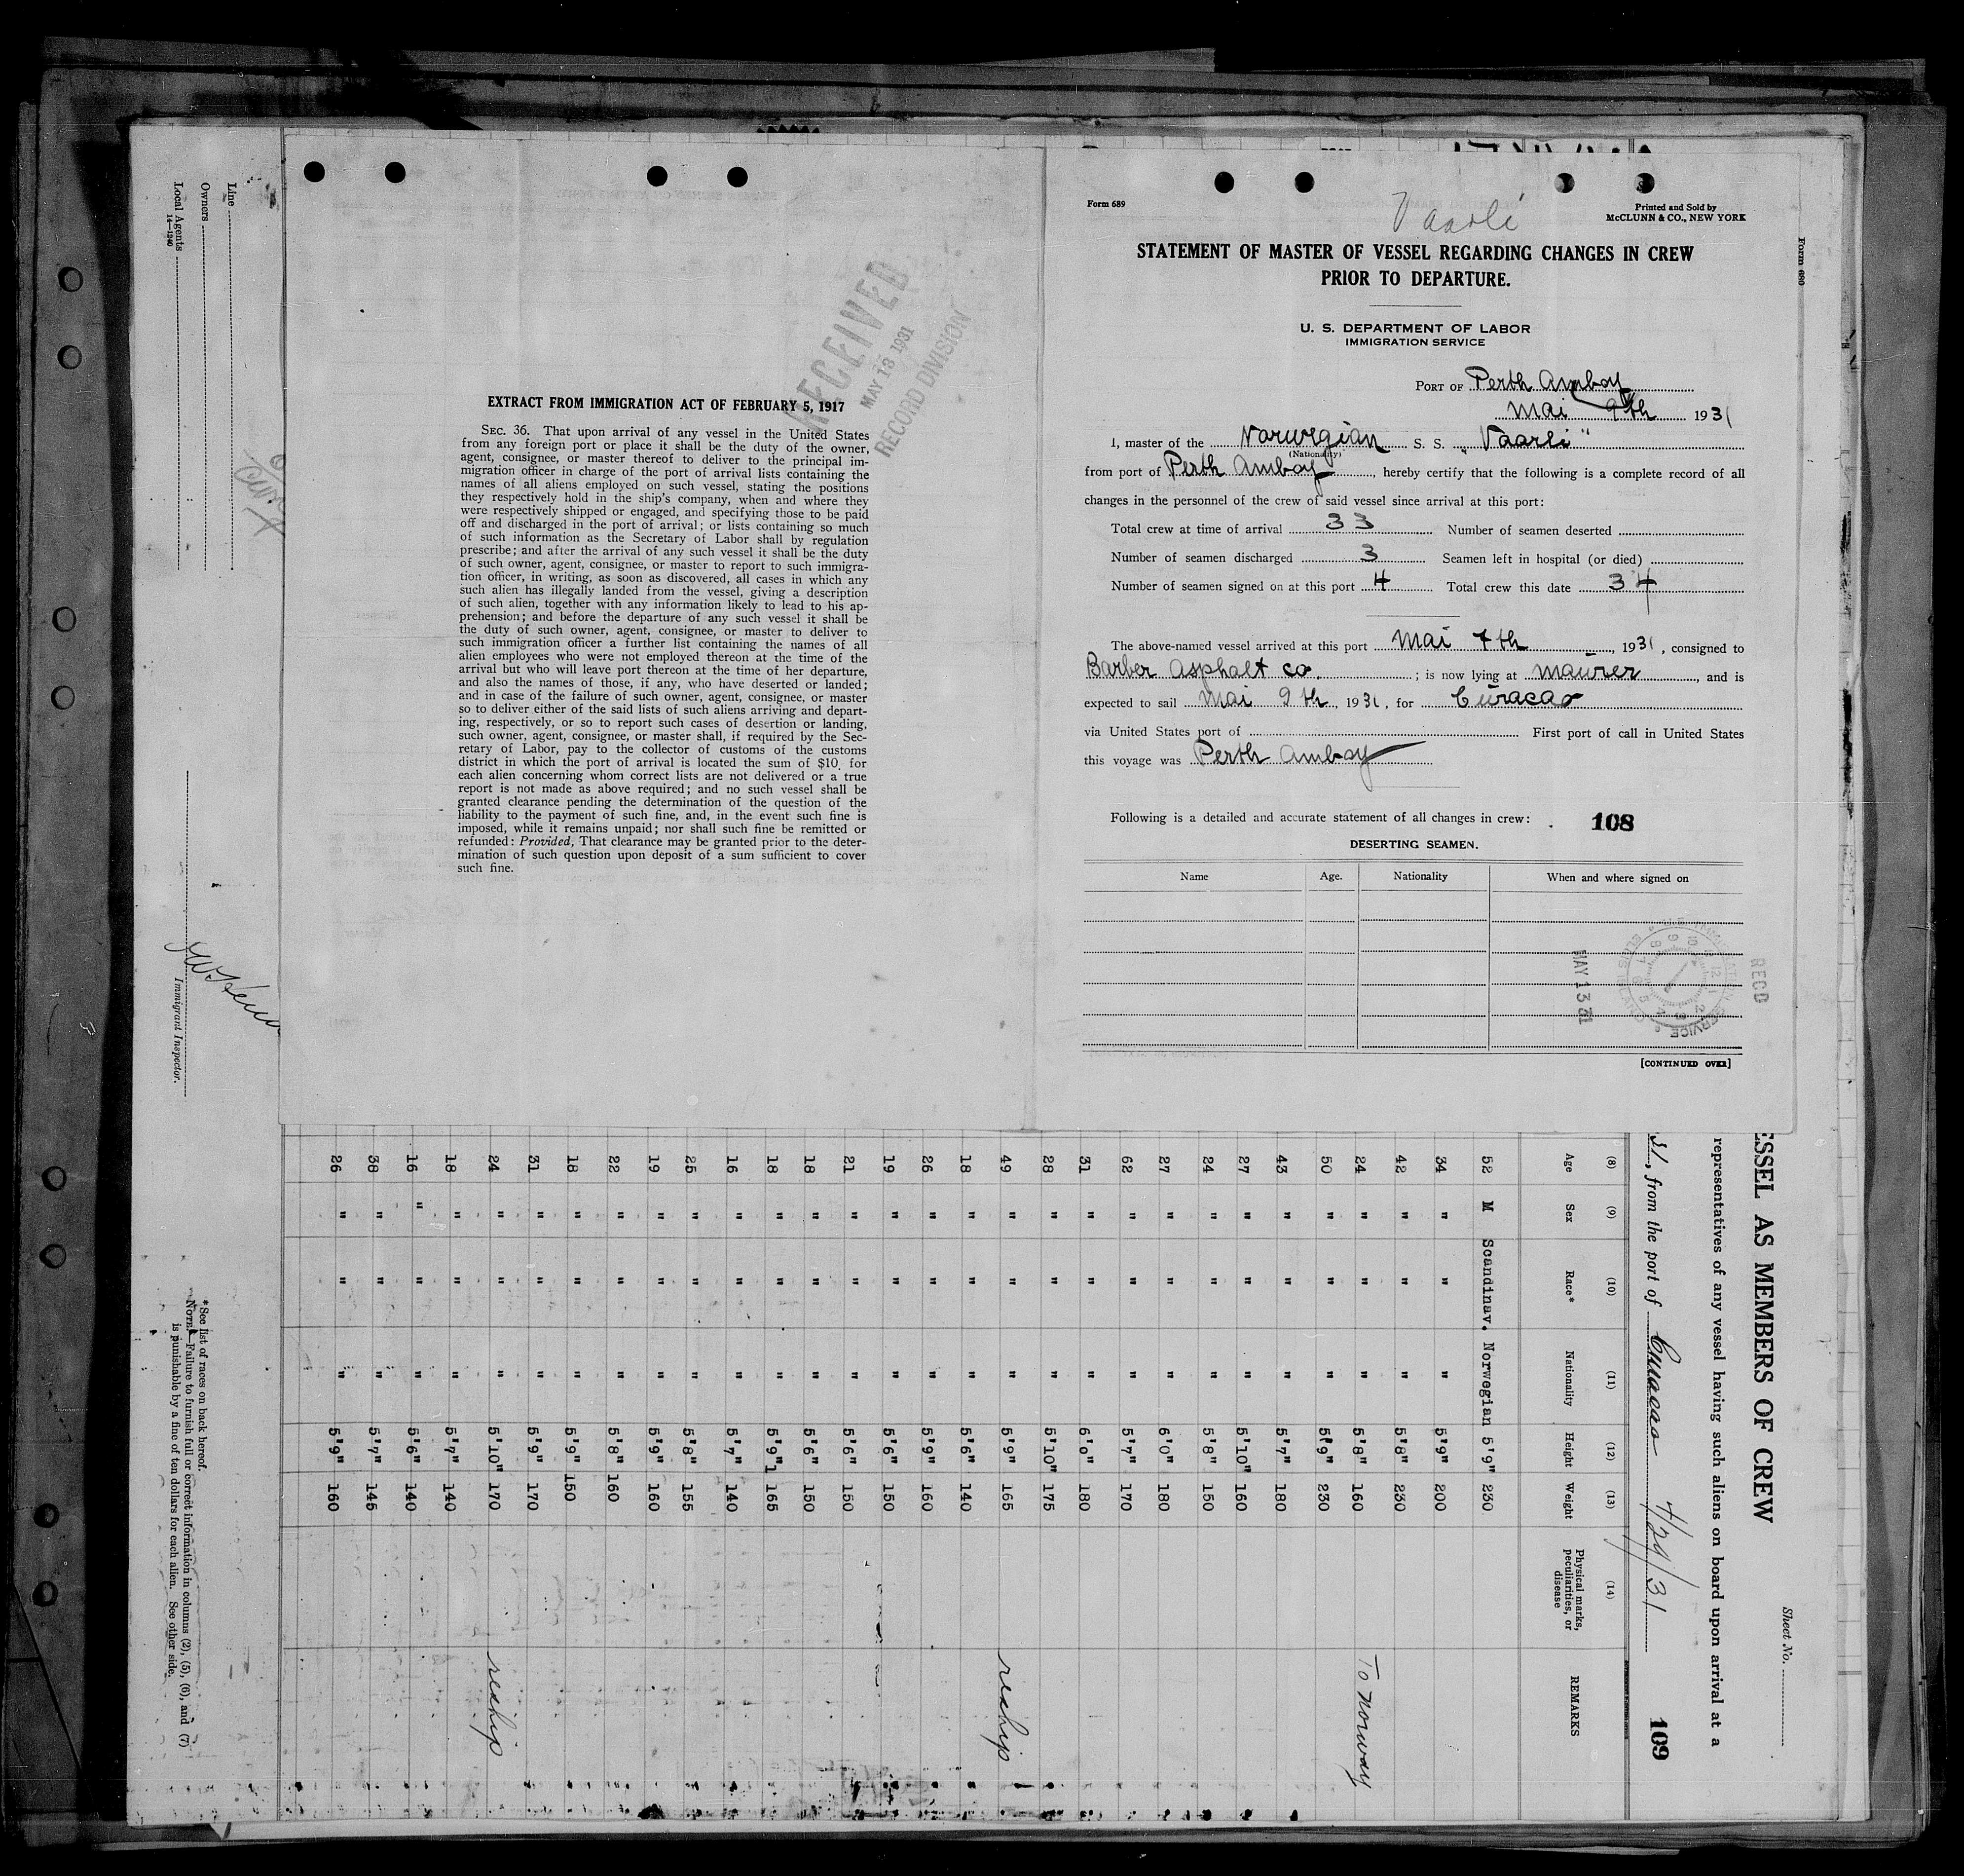 Line
Owners
Local Agents
14—1240
Immigrant Inspector.
*See list of races on back hereof.
NOTE.—Failure to furnish full or correct information in columns (2), (5), (6), and (7)
is punishable by a fine of ten dollars for each alien. See other side.
RECEIVED
MAY 18 1931
RECORD DIVISION
EXTRACT FROM IMMIGRATION ACT OF FEBRUARY 5, 1917
SEC. 36. That upon arrival of any vessel in the United States
from any foreign port or place it shall be the duty of the owner,
agent, consignee, or master thereof to deliver to the principal im-
migration officer in charge of the port of arrival lists containing the
names of all aliens employed on such vessel, stating the positions
they respectively hold in the ship's company, when and where they
were respectively shipped or engaged, and specifying those to be paid
off and discharged in the port of arrival; or lists containing so much
of such information as the Secretary of Labor shall by regulation
prescribe; and after the arrival of any such vessel it shall be the duty
of such owner, agent, consignee, or master to report to such immigra-
tion officer, in writing, as soon as discovered, all cases in which any
such alien has illegally landed from the vessel, giving a description
of such alien, together with any information likely to lead to his ap-
prehension; and before the departure of any such vessel it shall be
the duty of such owner, agent, consignee, or master to deliver to
such immigration officer a further list containing the names of all
alien employees who were not employed thereon at the time of the
arrival but who will leave port thereon at the time of her departure,
and also the names of those, if any, who have deserted or landed;
and in case of the failure of such owner, agent, consignee, or master
so to deliver either of the said lists of such aliens arriving and depart-
ing, respectively, or so to report such cases of desertion or landing,
such owner, agent, consignee, or master shall, if required by the Sec-
retary of Labor, pay to the collector of customs of the customs
district in which the port of arrival is located the sum of $10. for
each alien concerning whom correct lists are not delivered or a true
report is not made as above required; and no such vessel shall be
granted clearance pending the determination of the question of the
liability to the payment of such fine, and, in the event such fine is
imposed, while it remains unpaid; nor shall such fine be remitted or
refunded: Provided, That clearance may be granted prior to the deter-
mination of such question upon deposit of a sum sufficient to cover
such fine.
Form 689
Vaarli
Printed and Sold by
McCLUNN & CO., NEW YORK
Form 680
STATEMENT OF MASTER OF VESSEL REGARDING CHANGES IN CREW
PRIOR TO DEPARTURE.
U. S. DEPARTMENT OF LABOR
IMMIGRATION SERVICE
PORT OF Perth Amboy
Mai 9th 1931
I, master of the Norwegian S. S. "Vaarli"
(Nationality)
from port of Perth Amboy, hereby certify that the following is a complete record of all
changes in the personnel of the crew of said vessel since arrival at this port:
Total crew at time of arrival 33 Number of seamen deserted
Number of seamen discharged 3 Seamen left in hospital (or died)
Number of seamen signed on at this port 4 Total crew this date 34
The above-named vessel arrived at this port Mai 7th, 1931, consigned to
Barber Asphalt Co.; is now lying at Maurer, and is
expected to sail Mai 9th, 1931, for Curacao
via United States port of First port of call in United States
this voyage was Perth Amboy
Following is a detailed and accurate statement of all changes in crew: 108
DESERTING SEAMEN.
Name Age. Nationality When and where signed on
MAY 13 31
RECD
[CONTINUED OVER]
Sheet No.
ESSEL AS MEMBERS OF CREW
representatives of any vessel having such aliens on board upon arrival at a
, from the port of Curacao 4/29/31
109
(8) (9) (10) (11) (12) (13) (14)
Age Sex Race* Nationality Height Weight Physical marks, peculiarities, or disease REMARKS
52 M Scandinav. Norwegian 5'9" 230
34 " " " 5'9" 200
42 " " " 5'8" 230
24 " " " 5'8" 160 To Norway
50 " " " 5'9" 230
43 " " " 5'7" 180
27 " " " 5'10" 160
24 " " " 5'8" 150
27 " " " 6'0" 180
62 " " " 5'7" 170
31 " " " 6'0" 180
28 " " " 5'10" 175
49 " " " 5'9" 165 reship
18 " " " 5'6" 140
26 " " " 5'9" 160
19 " " " 5'6" 150
21 " " " 5'6" 150
18 " " " 5'6" 150
18 " " " 5'9" 165
16 " " " 5'7" 140
25 " " " 5'8" 155
19 " " " 5'9" 160
22 " " " 5'8" 160
18 " " " 5'9" 150
31 " " " 5'9" 170
24 " " " 5'10" 170 reship
18 " " " 5'7" 140
16 " " " 5'6" 140
38 " " " 5'7" 145
26 " " " 5'9" 160